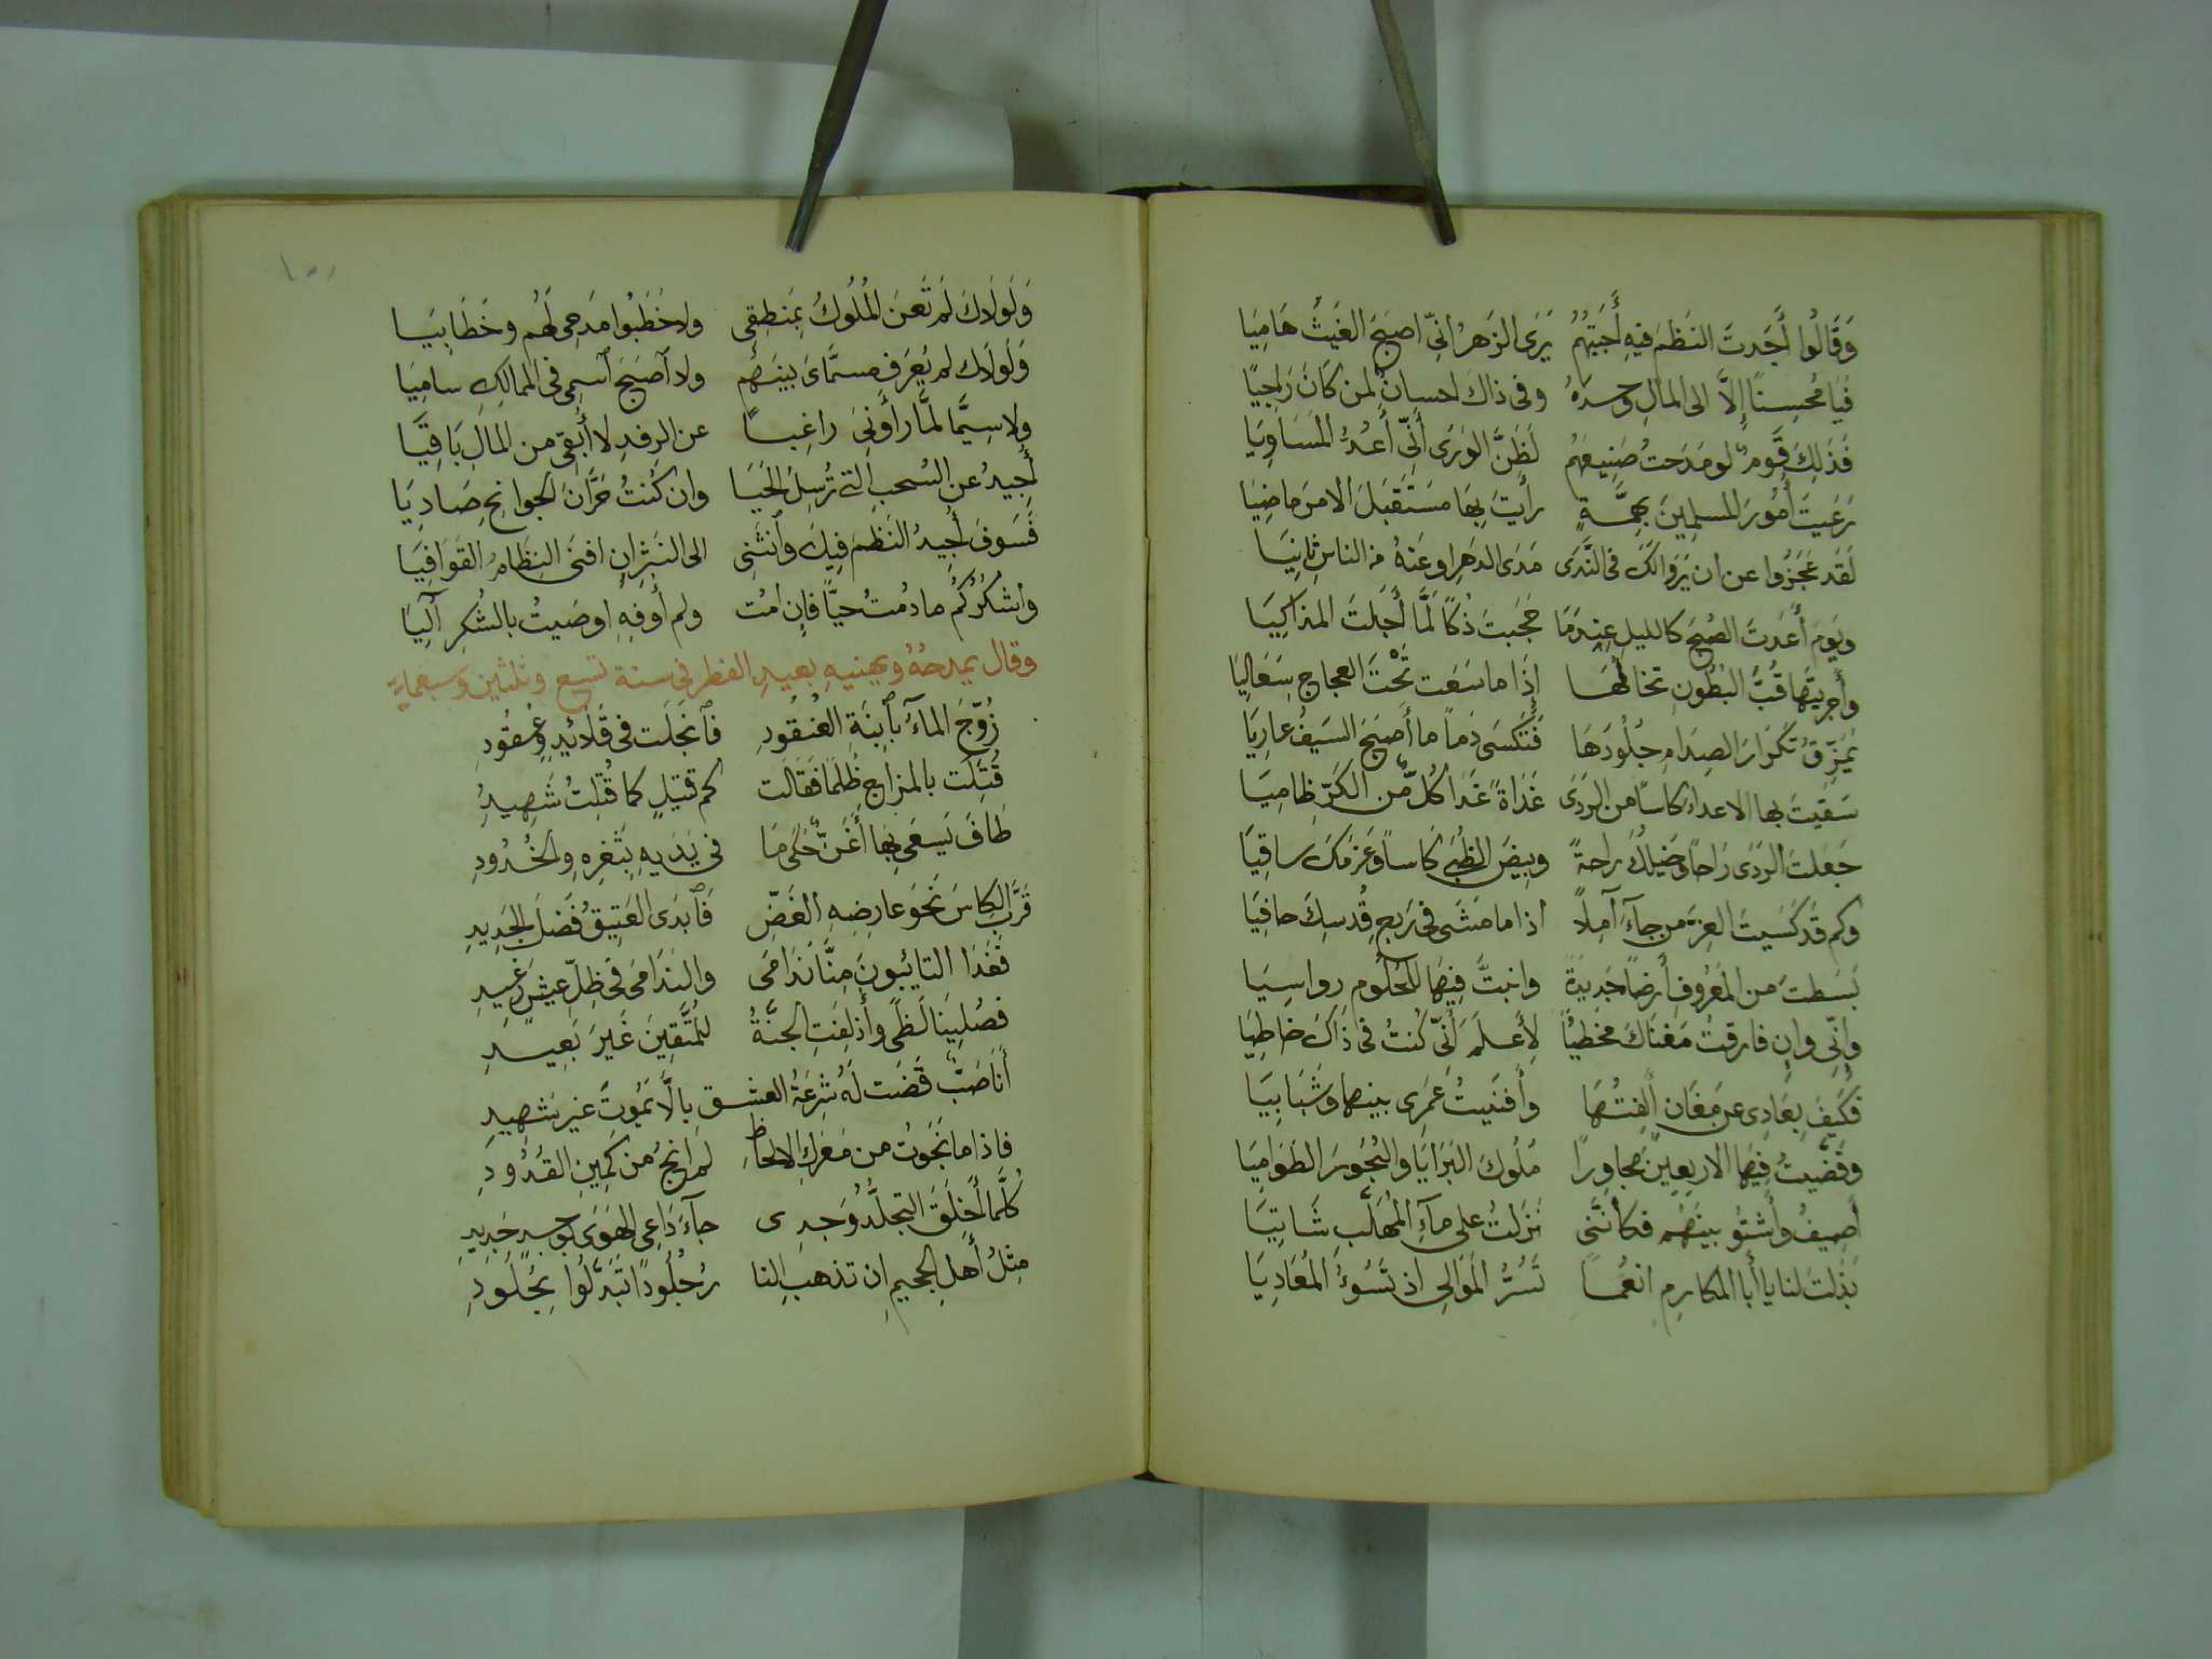 وَقَالُوا أَجَدتَ النَظمَ فيهِ أَجَبتُهُم يَرَى الزَهرُ انّى اصبَحَ الغَيثُ هَامِيَا
فَيَا مُحسِنًا إِلاَّ الى المالِ وحدَهُ وفى ذاكَ احسانٌ لمن كَانَ رَاجِيًا
فَذَلِكَ قَومٌ لو مَدَحتُ صَنِيعَهُم لَظَنَّ الوَرَى أَنِّى أَعُدُّ المَسَاوِيَا
رَعَيتَ أُمُورَ المسلمِينَ بِهِمَّةٍ رأَيتَ بِهَا مستَقبَلَ الامرَ ماضِيَا
لَقَد عَجَزُوا عن ان يَرَوا لَكَ فى النَّدَى مَدَى الدَهرِ او عَنهُ من الناسِ ثانِيَا
ويَومَ أَعَدتَ الصُبحَ كالليلِ عِندَمَا حَجَبتَ ذُكًا لَمَّا أَجَلتَ المذاكِيَا
وأَجرَيتَها قُبَّ البُطُونِ تخالُهَا إِذَا ما سَعَت تَحْتَ العجاجِ سَعَالِيَا
يُمَزِّقُ تَكرَارَ الصِدَامِ جُلُودَهَا فَتُكسَى دَماً ما أَصبَحَ السَيفُ عارِيَا
سَقيتَ بها الاعداء كاسًا من الردَى غَدَاةً غَدَا كُلٌّ من الكَرِّ ظامِيَا
جَعَلتَ الرَدَى رَاحًا وخَيلَكَ راحةً وبِيضَ الظُبَى كَاساً وعَزمَكَ ساقِيَا
وكم قَد كَسَيتَ العِزَ من جآءَ آمِلاً اذا ما مَشَى فى رَبعِ قُدسِكَ حافِيَا
بَسَطتَ من المَعروفِ أَرضاً جَدِيدَةً وانبتَّ فِيهَا للحُلُومِ رواسِيَا
وإِنّى وإِن فارقتُ مَغنَاكَ مخطِيًا لأَعلَمُ أَنّى كُنتُ فى ذَاكَ خاطِيَا
فَكَيفَ بِعَادِى عن مَغَانٍ أَلِفتُهَا وأَفنَيتُ عُمرِى بينها وشَبَابِيَا
وقَضَّيتُ فِيهَا الاربعِينَ مجاوِرًا مُلُوكَ البَرَايَا والبُحُورَ الطَوَامِيَا
أَصِيفُ وأَشتُو بينَهُم فكأَنَّنى نَزَلتُ على مآءِ المُهَلَّب شَاتِيَا
بَذَلتَ لنا يا أَبا المكارِمِ انعُمًا تَسُرُّ المَوَالِى اذ تَسُوءُ المُعَادِيَا
وَلَولَاكَ لَم تُعنَ المُلُوكُ بِمَنطِقِى ولا خَطَبُوا مَدحِى لَهُم وخَطَابِيَا
وَلَولَاك لم يُعرَف مسمَّاىَ بينَهُم ولا أَصبَحَ أسمِى فى الممالكِ سامِيَا
ولا سِيَّمَا لمَّا رَأَونِىَ راغِبًا عن الرفدِ لا أُبقِى من المالِ بَاقِيَا
أُجِيدُ عن السُحبِ التى تُرسِلُ الحَيَا وان كُنتُ حَرَّانَ الجوانِحِ صَادِيَا
فَسَوفَ أُجِيدُ النَظمَ فِيكَ وأَنثَنِى الى النَثرِ ان افنَى النِظَامُ القَوَافِيَا
واشكُرُكُم ما دُمتُ حيًّا فإِن امُت ولم أُوفِهِ اوصَيتُ بالشُكرِ آلِيَا
وقال يمدحُهُ ويهنيهِ بعيدِ الفطرِ فى سنة تسع وثلثين وسبعمايةٍ
زُوِّجَ المآءُ بأبنَةِ العُنقُودِ فانجَلَت فى قَلآئِدٍ وعُقُودِ
قُتِلَت بالمزاجِ ظُلمًا فقالَت كم قتيلٍ كما قُتِلتُ شَهِيدِ
طَافَ يَسعَى بِهَا أَغَنُّ حَكَى مَا فى يَدَيهِ بِثَغرِهِ والخُدُودِ
قَرَّبَ الكاسَ نَحوَ عارِضِهِ الغَضِّ فَأَبدَى العَتِيقُ فَضلَ الجَدِيدِ
فَغَدَا التايبُونَ مِنَّا نَدَامَى والنَدَامَى فى ظِلِّ عيشٍ رَغِيدِ
فصُلِينَا لَظًى وأُزلِفَتِ الجنَّةُ للمُتَّقِينَ غَيرَ بَعِيدِ
أَنَا صَبٌّ قَضَت لَهُ شِرعَةُ العشقِ بِالَّا يَمُوتَ غيرَ شهيدِ
فاذا ما نَجَوتُ من مَعرَكِ الالحاظِ لم انجُ من كَمِينِ القُدُودِ
كُلَّمَا أَخلَقَ التجلُّدُ وَجدِى جآءَ دَاعِى الهَوَى بوجدٍ جَدِيدِ
مِثلُ أَهلِ الجحيمِ ان تذهبِ النا رُ جُلُودًا تَبَدَّلُوا بِجُلُودِ